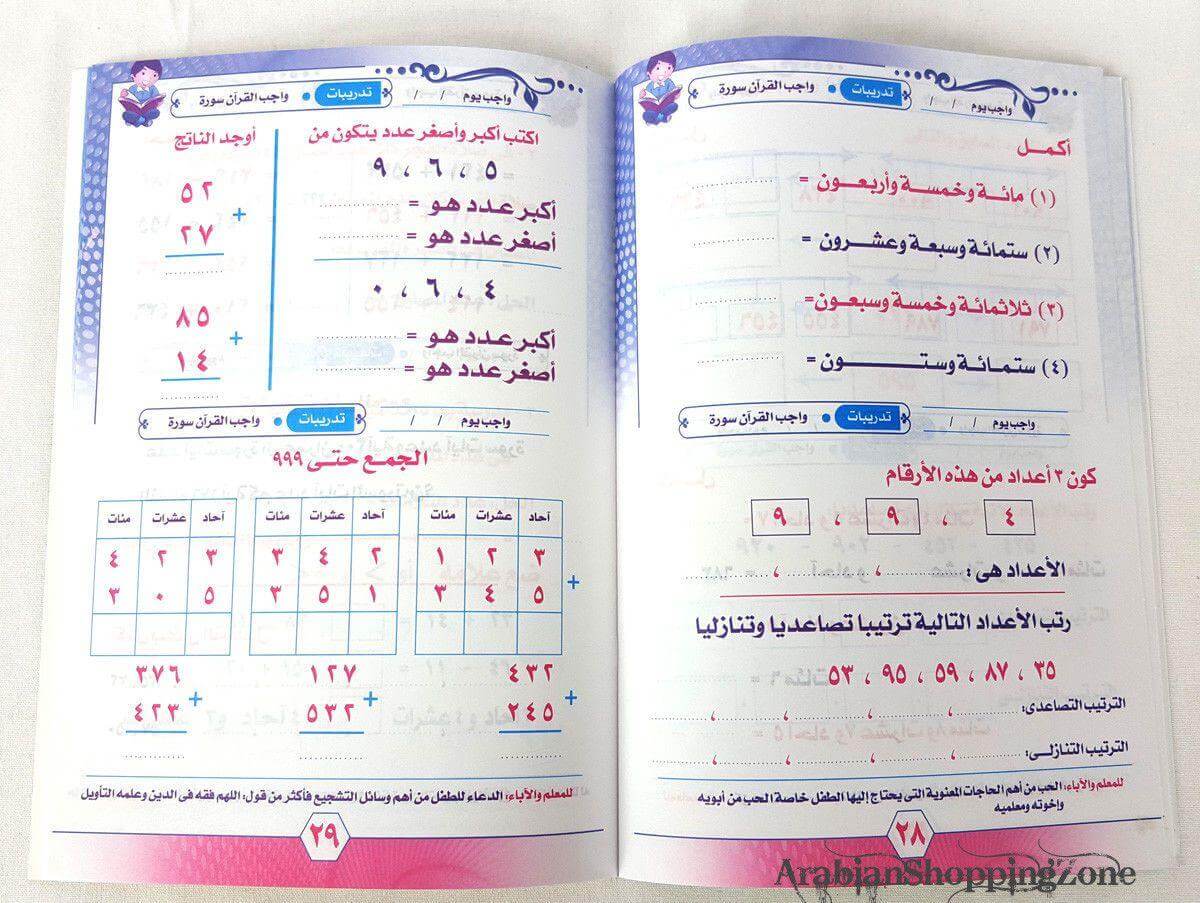 واجب يوم / / تدريبات • واجب القرآن سورة
أكمل
(١) مائة وخمسة وأربعون = ..........
(٢) ستمائة وسبعة وعشرون = ..........
(٣) ثلاثمائة وخمسة وسبعون= ..........
(٤) ستمائة وستون = ..........
واجب يوم / / تدريبات • واجب القرآن سورة
كون ٣ أعداد من هذه الأرقام
٤ ، ٩ ، ٩
الأعداد هى : .......... ، .......... ، ..........
رتب الأعداد التالية ترتيبا تصاعديا وتنازليا
٣٥ ، ٨٧ ، ٥٩ ، ٩٥ ، ٥٣
الترتيب التصاعدى: .......... ، .......... ، .......... ، .......... ، ..........
الترتيب التنازلى: .......... ، .......... ، .......... ، .......... ، ..........
للمعلم والآباء: الحب من أهم الحاجات المعنوية التى يحتاج إليها الطفل خاصة الحب من أبويه
وإخوته ومعلميه
٢٨
واجب يوم / / تدريبات • واجب القرآن سورة
اكتب أكبر وأصغر عدد يتكون من
٥ ، ٦ ، ٩
أكبر عدد هو = ..........
أصغر عدد هو = ..........
٤ ، ٦ ، ٠
أكبر عدد هو = ..........
أصغر عدد هو = ..........
أوجد الناتج
٥٢
+
٢٧
..........
٨٥
+
١٤
..........
واجب يوم / / تدريبات • واجب القرآن سورة
الجمع حتى ٩٩٩
آحاد عشرات مئات
٣ ٢ ١
+
٥ ٤ ٣
آحاد عشرات مئات
٢ ٤ ٣
١ ٥ ٣
آحاد عشرات مئات
٣ ٢ ٤
٥ ٠ ٣
٤٣٢
+
٢٤٥
..........
١٢٧
+
٥٣٢
..........
٣٧٦
+
٤٢٣
..........
للمعلم والآباء: الدعاء للطفل من أهم وسائل التشجيع فأكثر من قول: اللهم فقه فى الدين وعلمه التأويل
٢٩
ArabianShoppingZone